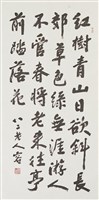 紅樹青山日欲斜長
郊草色綠無涯游人
不管春將老來往亭
前踏落花
老人